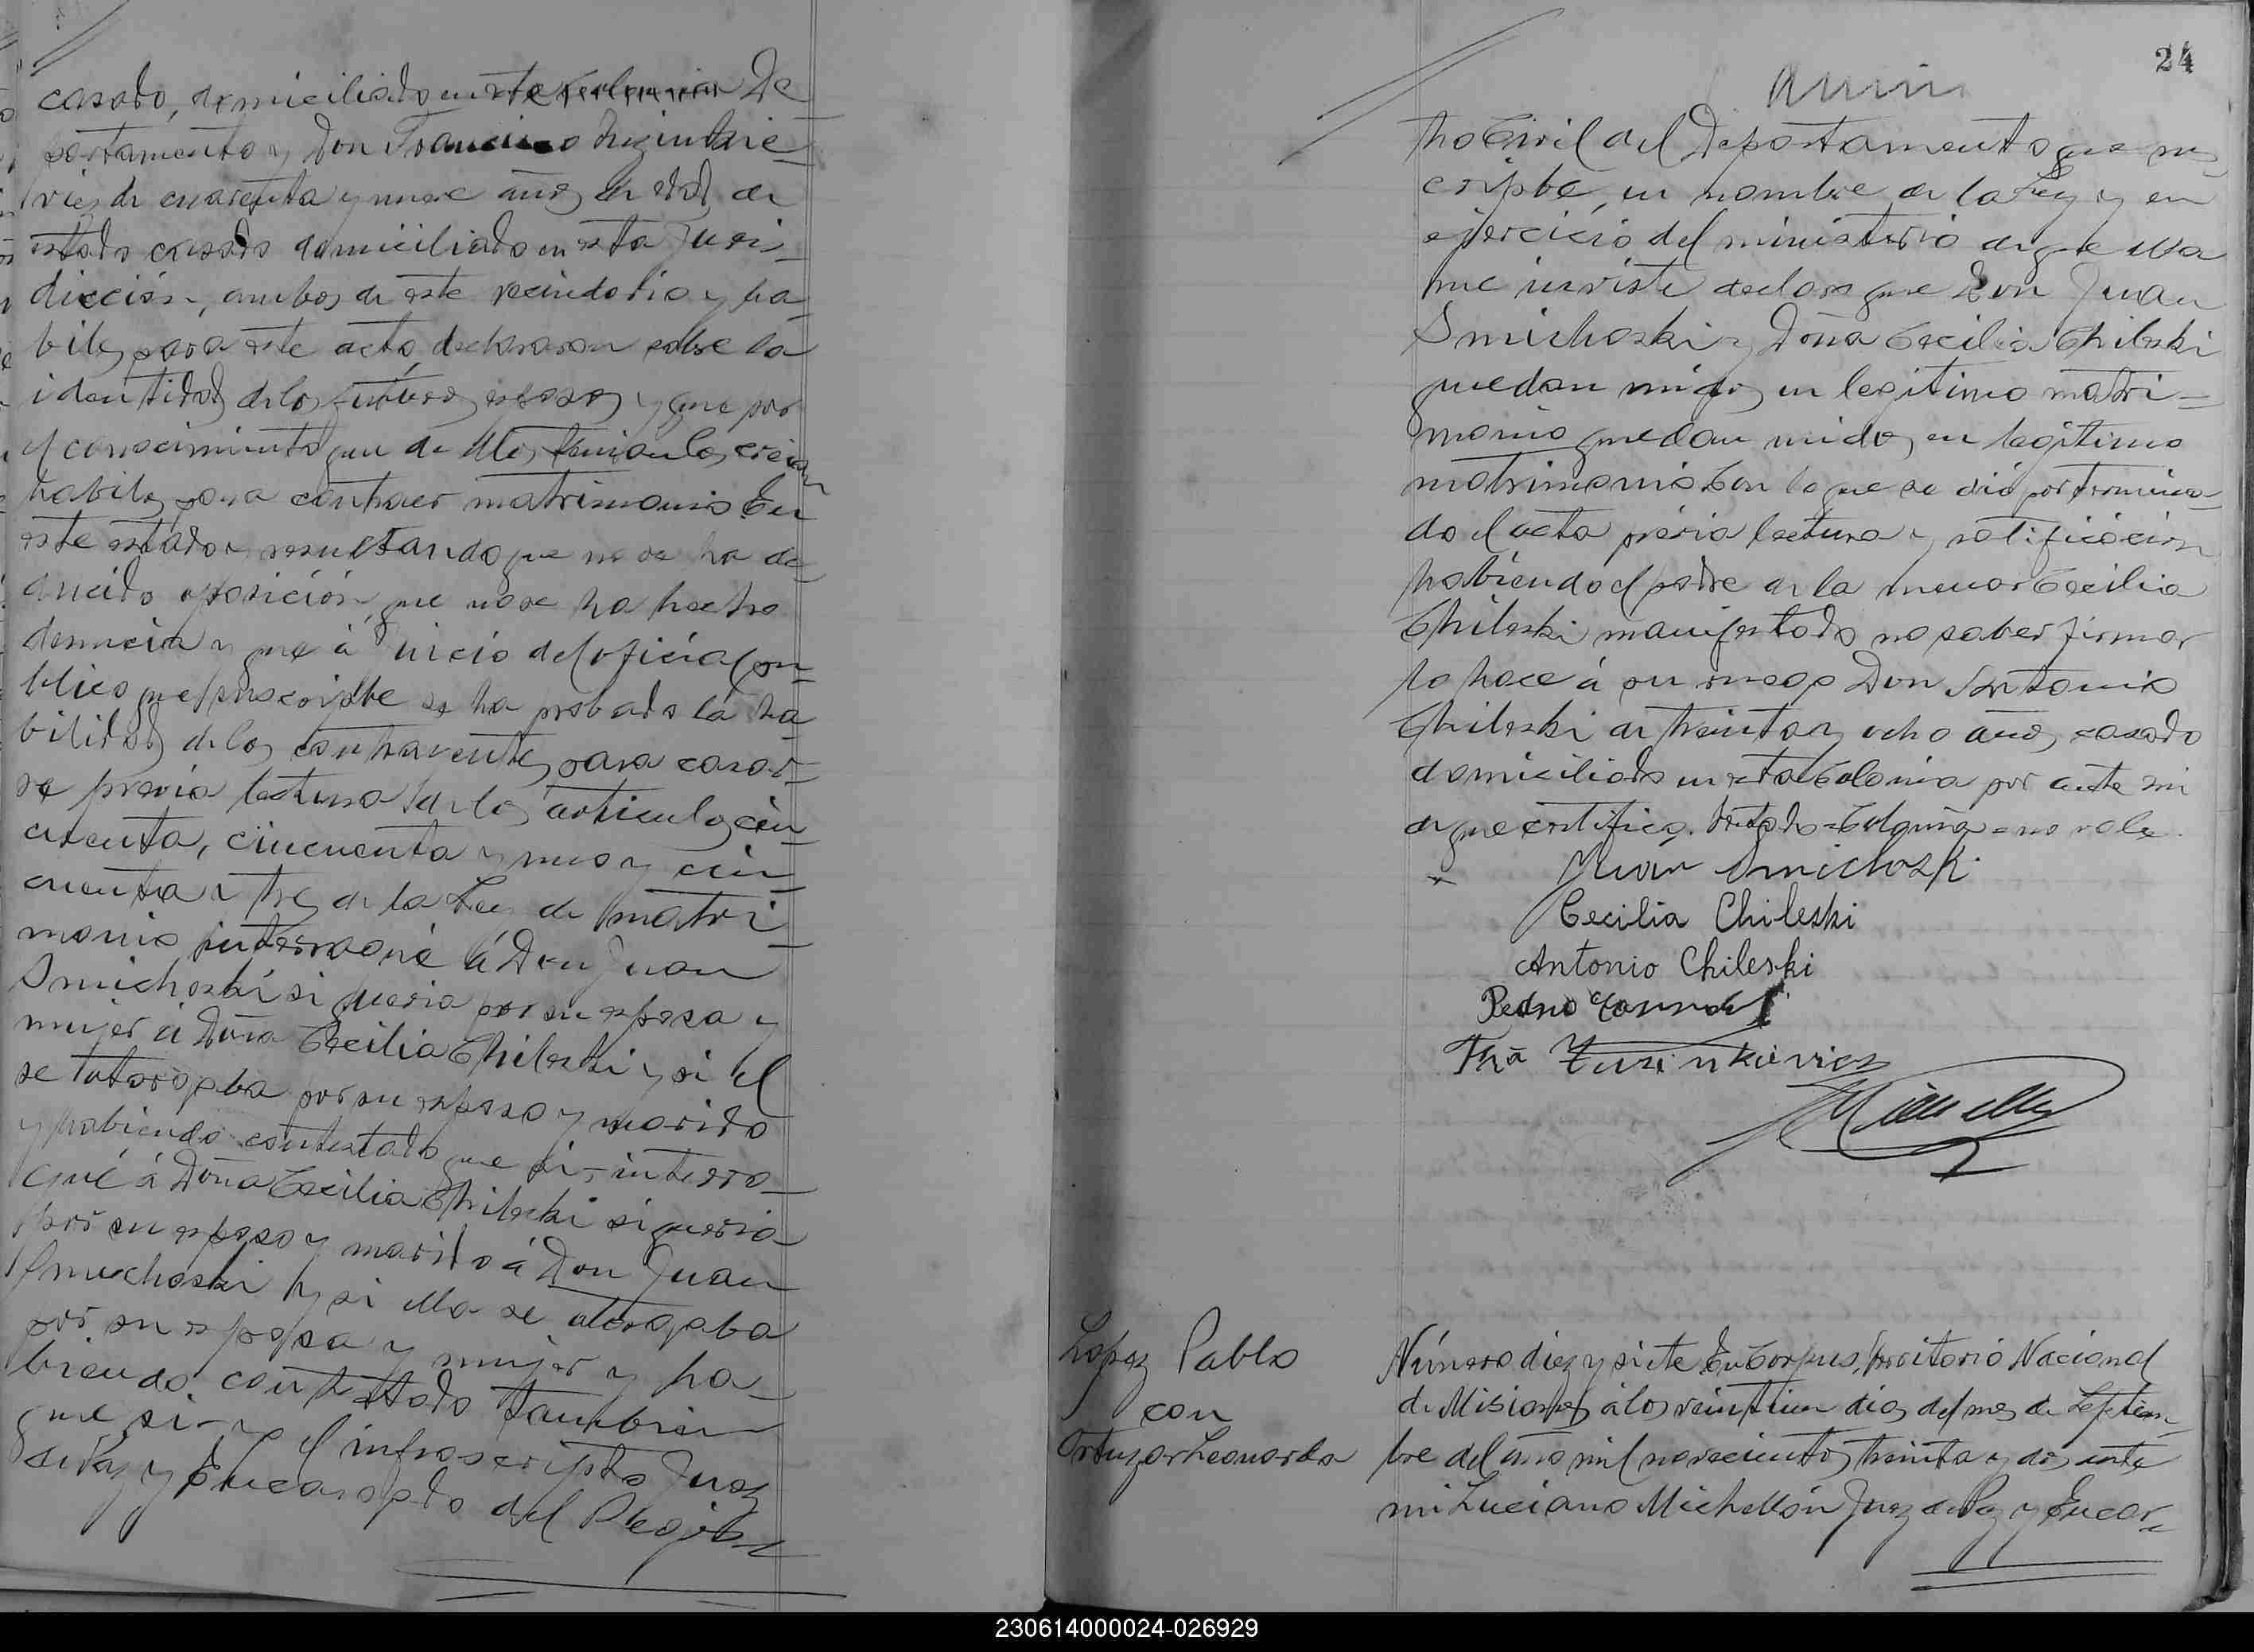 casado, domiciliado en este Colonia De
partamento y Don Francisco
de cuarenta y nueve años de edad de
estado casado domiciliado en esta Juris-
dicción, ambos de este vecindario y ha-
biles para este acto, declararon sobre la
identidad de los futuros esposos y que por
el conocimiento que de ellos tenian los creian
habiles para contraer matrimonio En
este estado y resultando que no se ha de-
ducido oposición, que no se ha hecho
denuncia y que á juicio del oficial pu-
blico que suscripbe se ha probado la ha
bilidad de los contrayentes para casar-
se previa lectura de los articulos cin-
cuenta, cincuenta y uno y cin-
cuenta y tres de la Ley de matri-
monio interrogué á Don Juan
Smichoski si queria por su esposa y
mujer á Doña Cecilia Chileski y si el
se otorgaba por su esposo y marido
y habiendo contestado que si, interro-
gué á Doña Cecilia Chileski si queria
por su esposo y marido á Don Juan
Smichoski y si ella se otorgaba
por su esposa y mujer y ha-
biendo contestado tambien
que si - yo el infrascripto Juez
de Paz y Encargado del Regis-
24
tro Civil del Departamento que sus
cripbe, en nombre de la Ley y en
ejercicio del ministerio de que ella
me inviste declaro que Don Juan
Smichoski y Doña Cecilia Chileski
quedan unidos en legitimo matri-
monio quedan unidos en legitimo
matrimonio. Con lo que se dió por termina-
do el acta prévia lectura y ratificación
habiendo el padre de la menor Cecilia
Chileski manifestado no saber firmar
lo hace á su ruego Don Antonio
Chileski de treinta y ocho años, casado
domiciliado en esta Colonia por ante mi
de que certifico. Testado = Colonia = no vale.
Juan Smichoski
Cecilia Chileski
Antonio Chileski
Pedro
Lopez Pablo
con
Ortuzar Leonarda
Número diez y siete En Corpus, Territorio Nacional
de Misiones á los veintiun dias del mes de Septiem-
bre del año mil novecientos treinta y dos, ante
mi Luciano Michellón Juez de Paz y Encar-
230614000024-026929